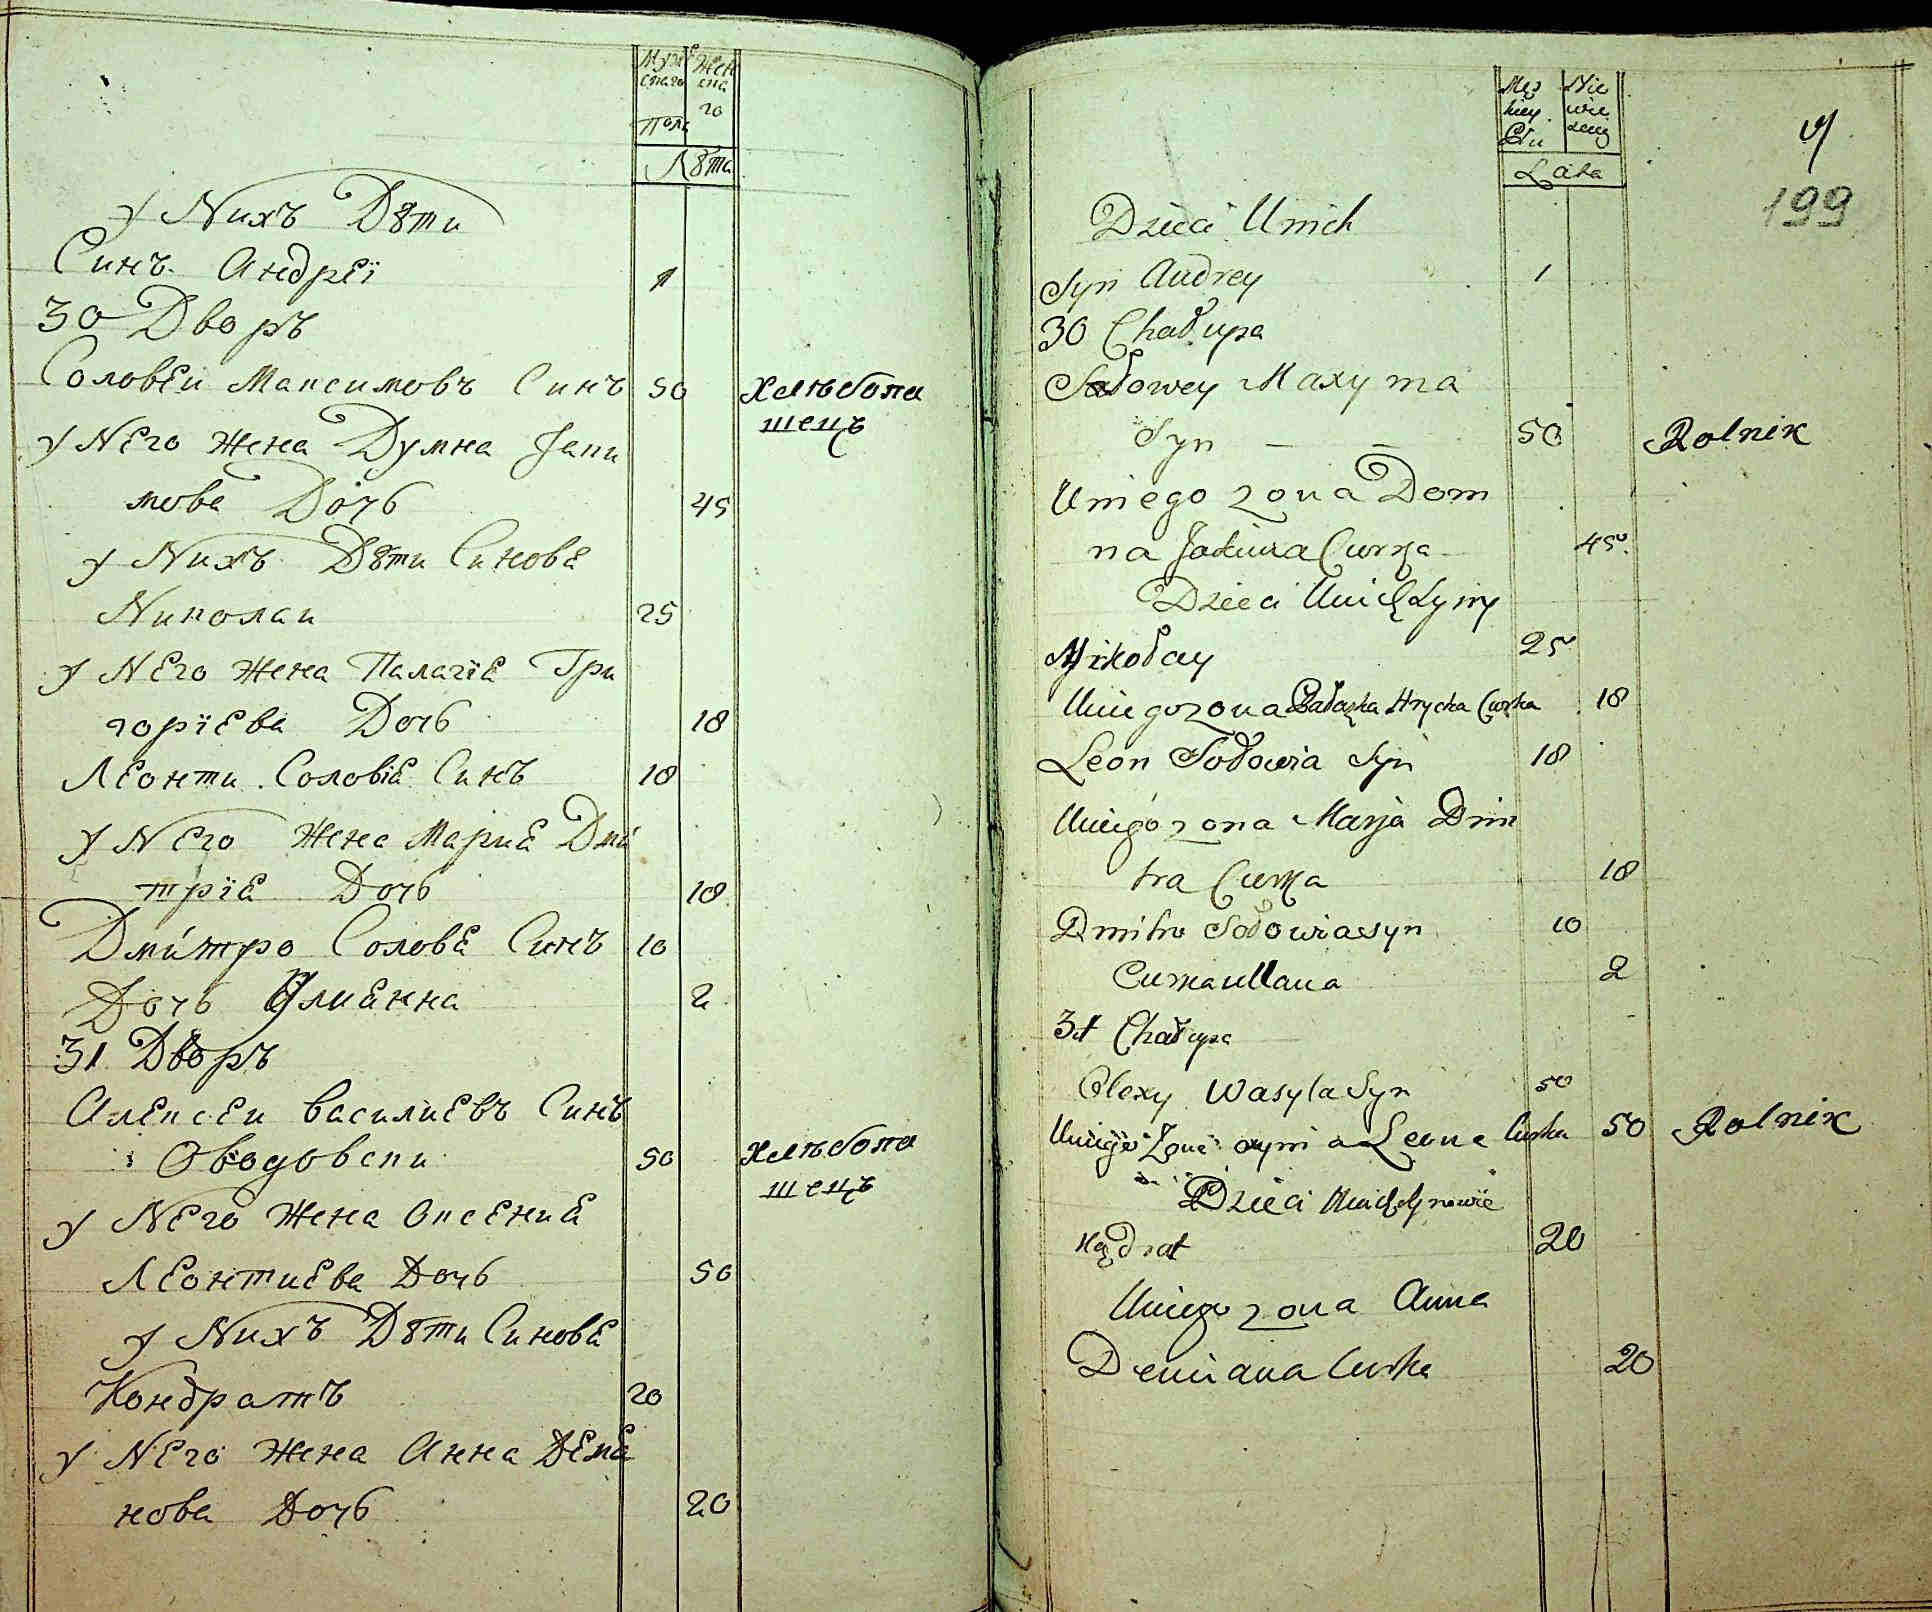 Муже
Жен
скаго
ска
го
Пола
Лѣта
У Nихъ Дѣти
Синъ Андреї 1
30 Дворъ
Соловеи Максимовъ Синъ 50 Хлѣбопа
шецъ
У Nего жена Думна Јаки
мова Дочь 45
У Nихъ Дѣти Синове
Nиколаи 25
У Nего жена Палагїе Гри
горїева Дочь 18
Леонти Соловїе Синъ 18
У Nего жена Марие Дми
трїе Дочь 18
Дмитро Солове Синъ 10
Дочь Улиенна 2
31 Дворъ
Алексеи Василиевъ Синъ
50 Хлѣбопа
шецъ
У Nего жена Оксение
Леонтиева Дочь 50
У Nихъ Дѣти Синове
Кондратъ 20
У Nего жена Анна Деме
нова Дочь 20
Męs
Nie
kiey
wie
Płu
Lata
199
Dzieci Unich
Syn Andrey 1
30 Chałupa
Sołowey Maxyma
Syn — — 50 Rolnik
Uniego zona Dom
na Jakima Curka 45
Dzieci Unich Syny
Mikołay 25
Uniego zona Pałaszka Hrycka Curka 18
Leon Sołowia Syn 18
Uniego zona Marja Dmi
tra Curka 18
Dmitro Sołowia syn 10
Curka Ulana 2
31 Chałupa
Olexy Wasyla Syn 50
Uniego Zona Leona Curka 50 Rolnik
Dzieci Unich Synowie
Kądrat 20
Uniego zona Anna
Demiana Curka 20